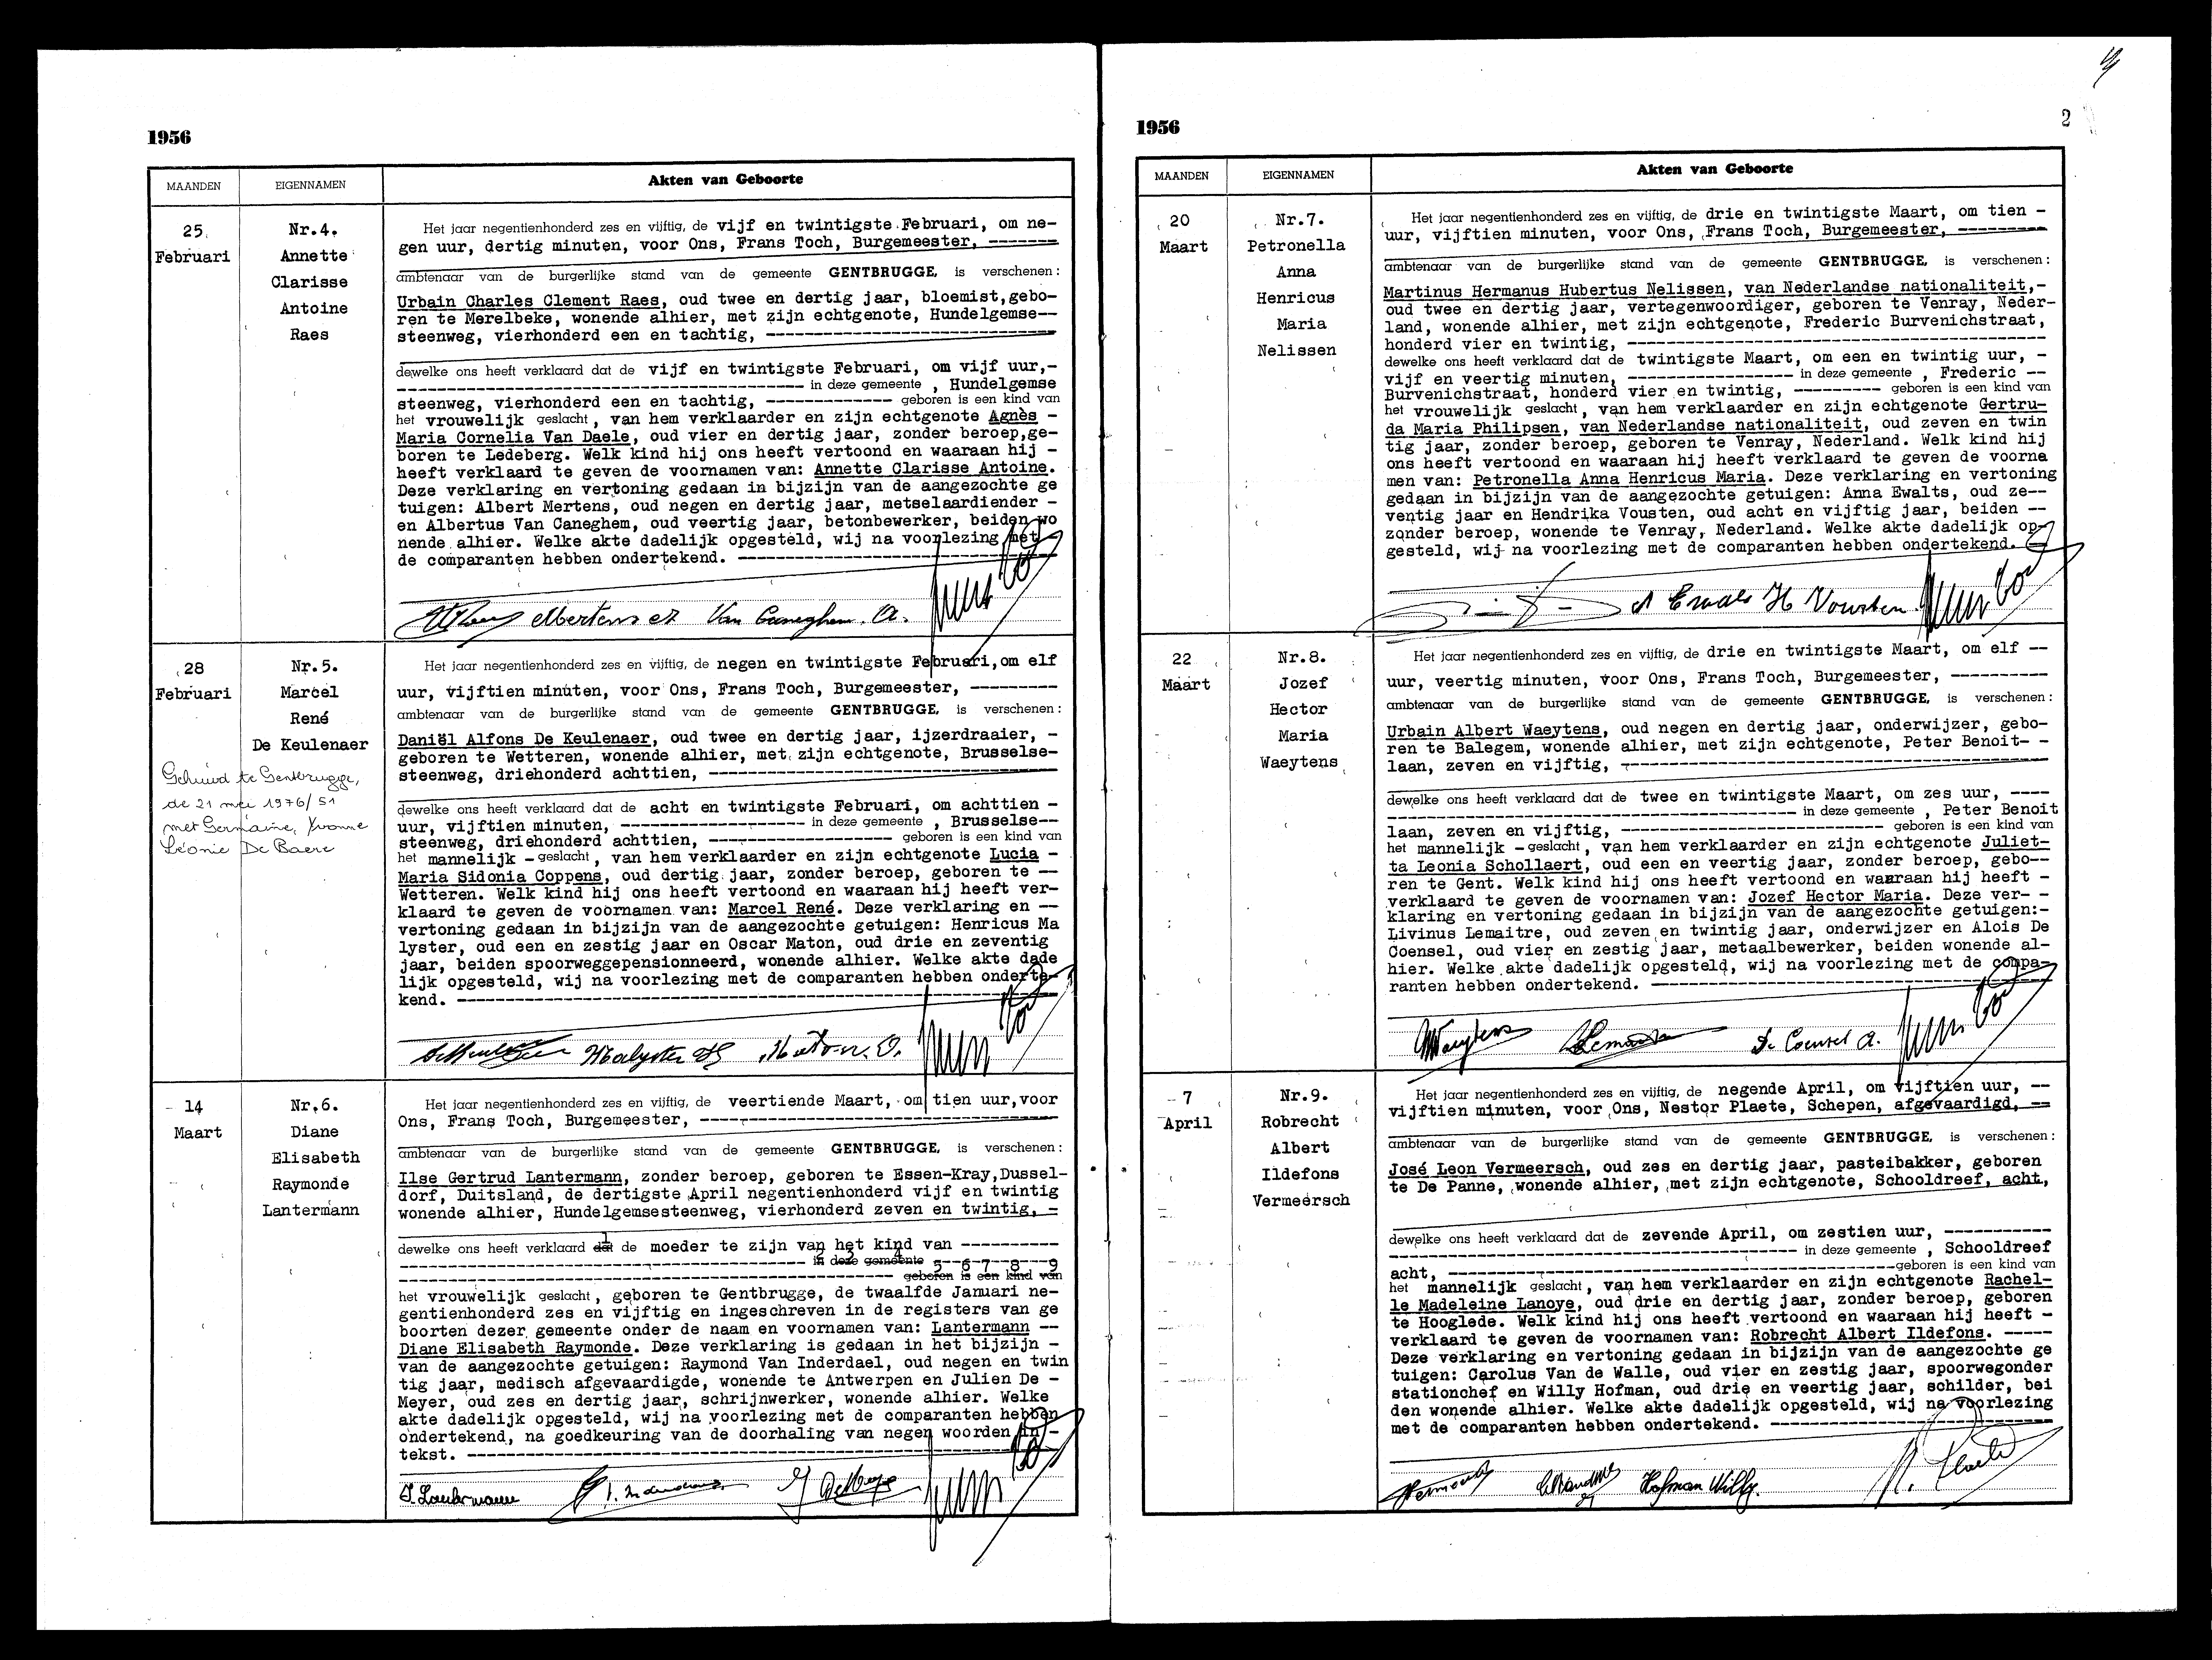 1956
MAANDEN
EIGENNAMEN
Akten van Geboorte
25
Februari
Nr.4.
Annette
Clarisse
Antoine
Raes
Het jaar negentienhonderd zes en vijftig, de vijf en twintigste Februari, om ne-
gen uur, dertig minuten, voor Ons, Frans Toch, Burgemeester, -------
ambtenaar van de burgerlijke stand van de gemeente GENTBRUGGE, is verschenen:
Urbain Charles Clement Raes, oud twee en dertig jaar, bloemist,gebo-
ren te Merelbeke, wonende alhier, met zijn echtgenote, Hundelgemse--
steenweg, vierhonderd een en tachtig, ------------------------------
dewelke ons heeft verklaard dat de vijf en twintigste Februari, om vijf uur,-
---------------------------------------- in deze gemeente , Hundelgemse
steenweg, vierhonderd een en tachtig, ------------- geboren is een kind van
het vrouwelijk geslacht, van hem verklaarder en zijn echtgenote Agnès -
Maria Cornelia Van Daele, oud vier en dertig jaar, zonder beroep,ge-
boren te Ledeberg. Welk kind hij ons heeft vertoond en waaraan hij -
heeft verklaard te geven de voornamen van: Annette Clarisse Antoine.
Deze verklaring en vertoning gedaan in bijzijn van de aangezochte ge
tuigen: Albert Mertens, oud negen en dertig jaar, metselaardiender -
en Albertus Van Caneghem, oud veertig jaar, betonbewerker, beiden wo
nende alhier. Welke akte dadelijk opgesteld, wij na voorlezing met
de comparanten hebben ondertekend. --------------------------------
Van Caneghem. A.
28
Februari
Nr.5.
Marcel
René
De Keulenaer
Gehuwd te Gentbrugge,
de 21 mei 1976/51
met Germaine, Yvonne
Léonie De Baere
Het jaar negentienhonderd zes en vijftig, de negen en twintigste Februari,om elf
uur, vijftien minuten, voor Ons, Frans Toch, Burgemeester, ---------
ambtenaar van de burgerlijke stand van de gemeente GENTBRUGGE, is verschenen:
Daniël Alfons De Keulenaer, oud twee en dertig jaar, ijzerdraaier, -
geboren te Wetteren, wonende alhier, met zijn echtgenote, Brusselse-
steenweg, driehonderd achttien, -----------------------------------
dewelke ons heeft verklaard dat de acht en twintigste Februari, om achttien -
uur, vijftien minuten, ------------------- in deze gemeente , Brusselse--
steenweg, driehonderd achttien, ------------------ geboren is een kind van
het mannelijk - geslacht, van hem verklaarder en zijn echtgenote Lucia -
Maria Sidonia Coppens, oud dertig jaar, zonder beroep, geboren te --
Wetteren. Welk kind hij ons heeft vertoond en waaraan hij heeft ver-
klaard te geven de voornamen van: Marcel René. Deze verklaring en --
vertoning gedaan in bijzijn van de aangezochte getuigen: Henricus Ma
lyster, oud een en zestig jaar en Oscar Maton, oud drie en zeventig
jaar, beiden spoorweggepensionneerd, wonende alhier. Welke akte dade
lijk opgesteld, wij na voorlezing met de comparanten hebben onderte-
kend. -------------------------------------------------------------
14
Maart
Nr.6.
Diane
Elisabeth
Raymonde
Lantermann
Het jaar negentienhonderd zes en vijftig, de veertiende Maart, om tien uur,voor
Ons, Frans Toch, Burgemeester, ------------------------------------
ambtenaar van de burgerlijke stand van de gemeente GENTBRUGGE, is verschenen:
Ilse Gertrud Lantermann, zonder beroep, geboren te Essen-Kray,Dussel-
dorf, Duitsland, de dertigste April negentienhonderd vijf en twintig
wonende alhier, Hundelgemsesteenweg, vierhonderd zeven en twintig, -
dewelke ons heeft verklaard dat de moeder te zijn van het kind van ----------
------------------------------------------ in deze gemeente 5--6--7--8---9
-------------------------------------------------- geboren is een kind van
het vrouwelijk geslacht, geboren te Gentbrugge, de twaalfde Januari ne-
gentienhonderd zes en vijftig en ingeschreven in de registers van ge
boorten dezer gemeente onder de naam en voornamen van: Lantermann --
Diane Elisabeth Raymonde. Deze verklaring is gedaan in het bijzijn -
van de aangezochte getuigen: Raymond Van Inderdael, oud negen en twin
tig jaar, medisch afgevaardigde, wonende te Antwerpen en Julien De -
Meyer, oud zes en dertig jaar, schrijnwerker, wonende alhier. Welke
akte dadelijk opgesteld, wij na voorlezing met de comparanten hebben
ondertekend, na goedkeuring van de doorhaling van negen woorden in -
tekst. ------------------------------------------------------------
1956
2
MAANDEN
EIGENNAMEN
Akten van Geboorte
20
Maart
Nr.7.
Petronella
Anna
Henricus
Maria
Nelissen
Het jaar negentienhonderd zes en vijftig, de drie en twintigste Maart, om tien -
uur, vijftien minuten, voor Ons, Frans Toch, Burgemeester, ---------
ambtenaar van de burgerlijke stand van de gemeente GENTBRUGGE, is verschenen:
Martinus Hermanus Hubertus Nelissen, van Nederlandse nationaliteit,-
oud twee en dertig jaar, vertegenwoordiger, geboren te Venray, Neder-
land, wonende alhier, met zijn echtgenote, Frederic Burvenichstraat,
honderd vier en twintig, ------------------------------------------
dewelke ons heeft verklaard dat de twintigste Maart, om een en twintig uur, -
vijf en veertig minuten, ----------------- in deze gemeente , Frederic --
Burvenichstraat, honderd vier en twintig, --------- geboren is een kind van
het vrouwelijk geslacht, van hem verklaarder en zijn echtgenote Gertru-
da Maria Philipsen, van Nederlandse nationaliteit, oud zeven en twin
tig jaar, zonder beroep, geboren te Venray, Nederland. Welk kind hij
ons heeft vertoond en waaraan hij heeft verklaard te geven de voorna
men van: Petronella Anna Henricus Maria. Deze verklaring en vertoning
gedaan in bijzijn van de aangezochte getuigen: Anna Ewalts, oud ze--
ventig jaar en Hendrika Vousten, oud acht en vijftig jaar, beiden --
zonder beroep, wonende te Venray, Nederland. Welke akte dadelijk op-
gesteld, wij na voorlezing met de comparanten hebben ondertekend. -
H Vousten
22
Maart
Nr.8.
Jozef
Hector
Maria
Waeytens
Het jaar negentienhonderd zes en vijftig, de drie en twintigste Maart, om elf --
uur, veertig minuten, voor Ons, Frans Toch, Burgemeester, ----------
ambtenaar van de burgerlijke stand van de gemeente GENTBRUGGE, is verschenen:
Urbain Albert Waeytens, oud negen en dertig jaar, onderwijzer, gebo-
ren te Balegem, wonende alhier, met zijn echtgenote, Peter Benoit- -
laan, zeven en vijftig, -------------------------------------------
dewelke ons heeft verklaard dat de twee en twintigste Maart, om zes uur, ----
---------------------------------------- in deze gemeente , Peter Benoit
laan, zeven en vijftig, --------------------------- geboren is een kind van
het mannelijk - geslacht, van hem verklaarder en zijn echtgenote Juliet-
ta Leonia Schollaert, oud een en veertig jaar, zonder beroep, gebo--
ren te Gent. Welk kind hij ons heeft vertoond en waaraan hij heeft -
verklaard te geven de voornamen van: Jozef Hector Maria. Deze ver- -
klaring en vertoning gedaan in bijzijn van de aangezochte getuigen:-
Livinus Lemaitre, oud zeven en twintig jaar, onderwijzer en Alois De
Coensel, oud vier en zestig jaar, metaalbewerker, beiden wonende al-
hier. Welke akte dadelijk opgesteld, wij na voorlezing met de compa-
ranten hebben ondertekend. ----------------------------------------
De Coensel A.
7
April
Nr.9.
Robrecht
Albert
Ildefons
Vermeersch
Het jaar negentienhonderd zes en vijftig, de negende April, om vijftien uur, --
vijftien minuten, voor Ons, Nestor Plaete, Schepen, afgevaardigd, --
ambtenaar van de burgerlijke stand van de gemeente GENTBRUGGE, is verschenen:
José Leon Vermeersch, oud zes en dertig jaar, pasteibakker, geboren
te De Panne, wonende alhier, met zijn echtgenote, Schooldreef, acht,
dewelke ons heeft verklaard dat de zevende April, om zestien uur, -----------
---------------------------------------- in deze gemeente , Schooldreef
acht, ---------------------------------------------geboren is een kind van
het mannelijk geslacht, van hem verklaarder en zijn echtgenote Rachel-
le Madeleine Lanoye, oud drie en dertig jaar, zonder beroep, geboren
te Hooglede. Welk kind hij ons heeft vertoond en waaraan hij heeft -
verklaard te geven de voornamen van: Robrecht Albert Ildefons. -----
Deze verklaring en vertoning gedaan in bijzijn van de aangezochte ge
tuigen: Carolus Van de Walle, oud vier en zestig jaar, spoorwegonder
stationchef en Willy Hofman, oud drie en veertig jaar, schilder, bei
den wonende alhier. Welke akte dadelijk opgesteld, wij na voorlezing
met de comparanten hebben ondertekend. -----------------------------
Hofman Willy.